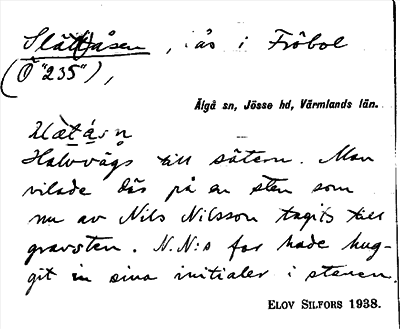 Slättåsen, ås i Fröbol
(Ö "235"),
Älgå sn, Jösse hd, Värmlands län.
Halvvägs till sätern. Man
vilade där på en sten som
nu av Nils Nilsson tagits till
gravsten. N.N:s far hade hug-
git in sina initialer i stenen.
ELOV SILFORS 1938.